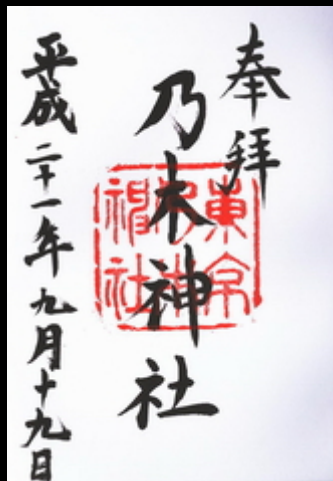 奉拝
東京乃木神社
乃木神社
平成二十一年九月十九日